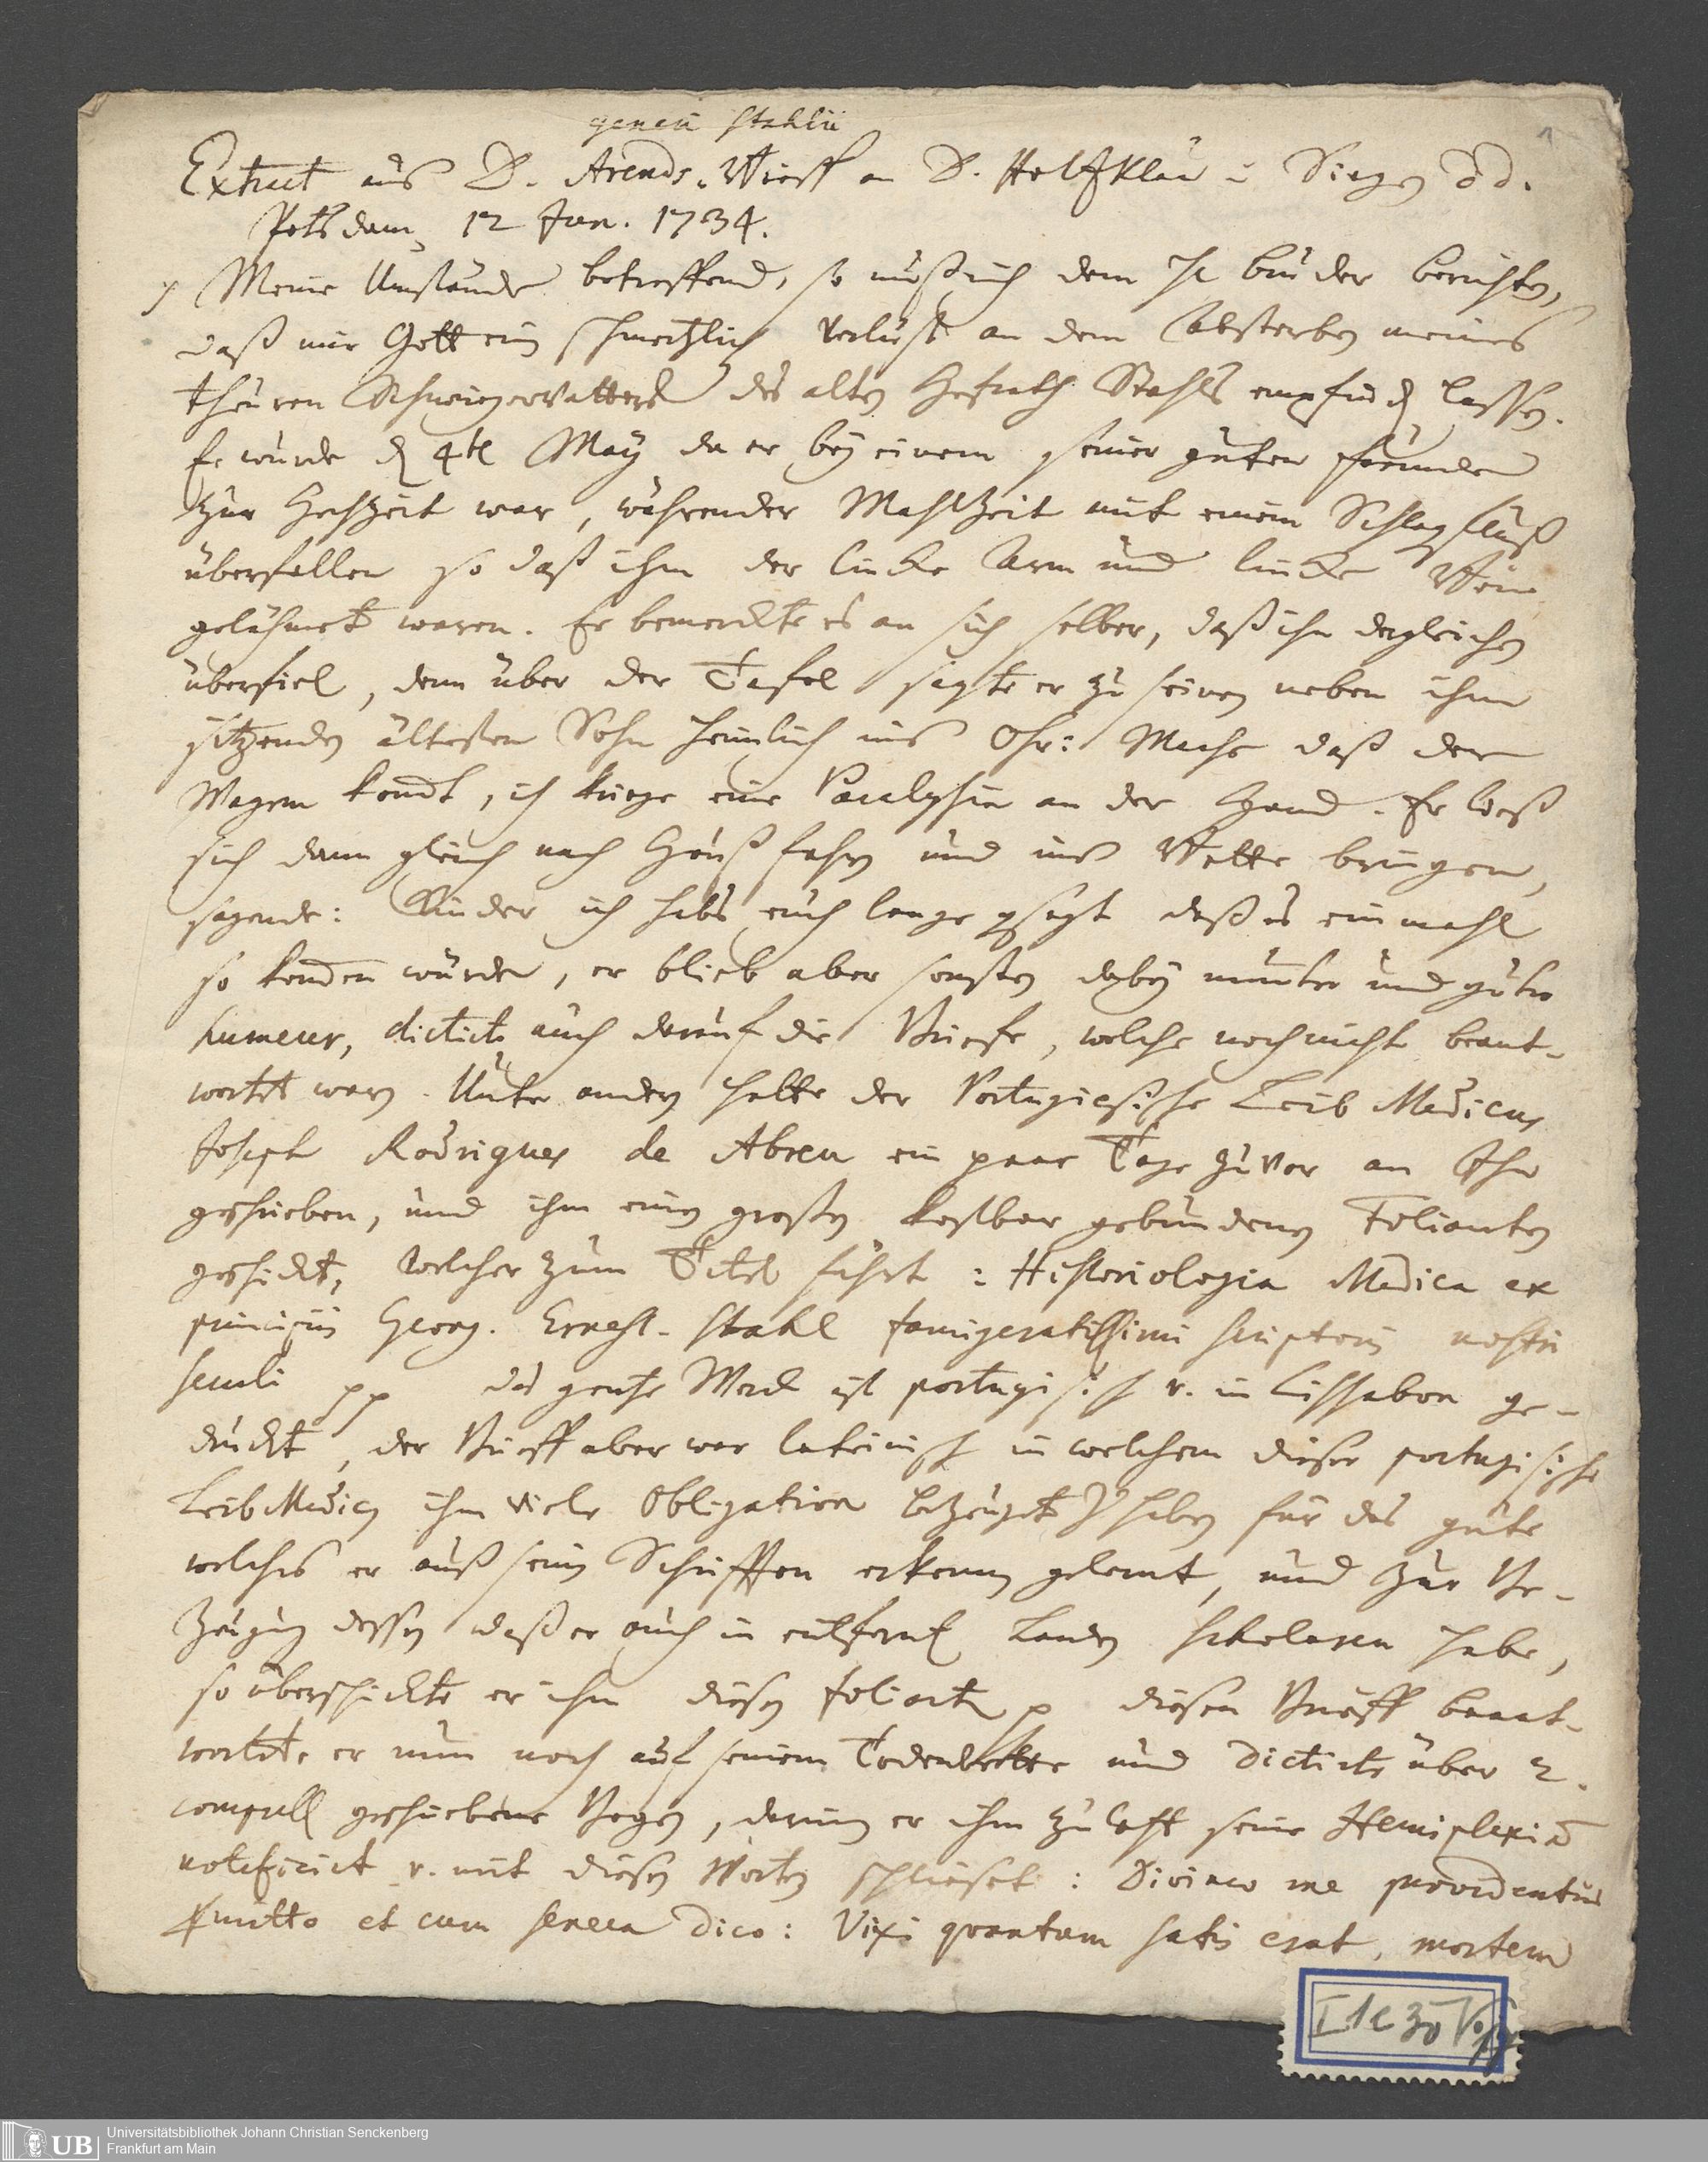 generi Stahlii
1
Extract aus D. Arends. Brieff an D. Holtzklau in Siegen dd.
Potsdam, 12 Jan. 1734.
Meine Umstände betreffend, so muß ich dem H. bruder berichten,
daß mir Gott ein schmertzlich Verlust an dem Absterben meines
theuren Schwiegervatters des alten Hofrath Stahls empfinden lassen.
Er wurde d 4te May da er bey einem seiner guten freunde
zur Hochzeit war, währender Mahlzeit mit einem Schlagfluß
überfallen so daß ihm der lincke Arm und lincke Bein
gelähmet waren. Er bemerckte es an sich selber, daß ihn dergleichen
überfiel, denn über der Tafel sagte er zu seinen neben ihm
sitzenden ältesten Sohn heimlich ins Ohr: Mache daß der
Wagen komt, ich kriege eine Paralysin an der Hand. Er ließ
sich dann gleich nach Hauß fahren und ins Bette bringen,
sagende: Kinder ich habs euch lange gesagt daß es einmahl
so kommen würde, er blieb aber sonsten dabey munter und guter
humeur, dictirte auch darauf die Briefe, welche noch nicht beant-
wortet waren. Unter andern hatte der Portugiesische Leib Medicus
Joseph Rodrigues de Abreu ein paar Tage zuvor an Ihn
geschrieben, und ihm einen großen kostbar gebundenen Folianten
geschickt, welcher zum Titel führt: Historiologia Medica ex
principiis Georg. Ernest. Stahl famigeratissimi scriptoris nostri
seculi pp das gantze Werck ist portugisisch v. in Lissabon ge-
druckt, der Brieff aber war lateinisch in welchem dieser portugisische
Leib Medicus ihm viele Obligation bezeugte zu haben für das gute
welches er auß seinen Schrifften erkennen gelernt, und zur Be-
zeugung dessen daß er auch in entfernten Landen scholaren habe,
so überschickte er ihm diesen foliant p diesen Brieff beant-
wortete er nun noch auf seinem Todenbette und dictirte über 2.
compress geschriebene Bogen, darinn er ihm zuletzt seine Hemiplexiam
notificirt v. mit diesen Worten schließet: Divinae me providentiae
committo et cum Seneca dico: Vixi quantum satis erat, mortem
Universitätsbibliothek Johann Christian Senckenberg
UB Frankfurt am Main